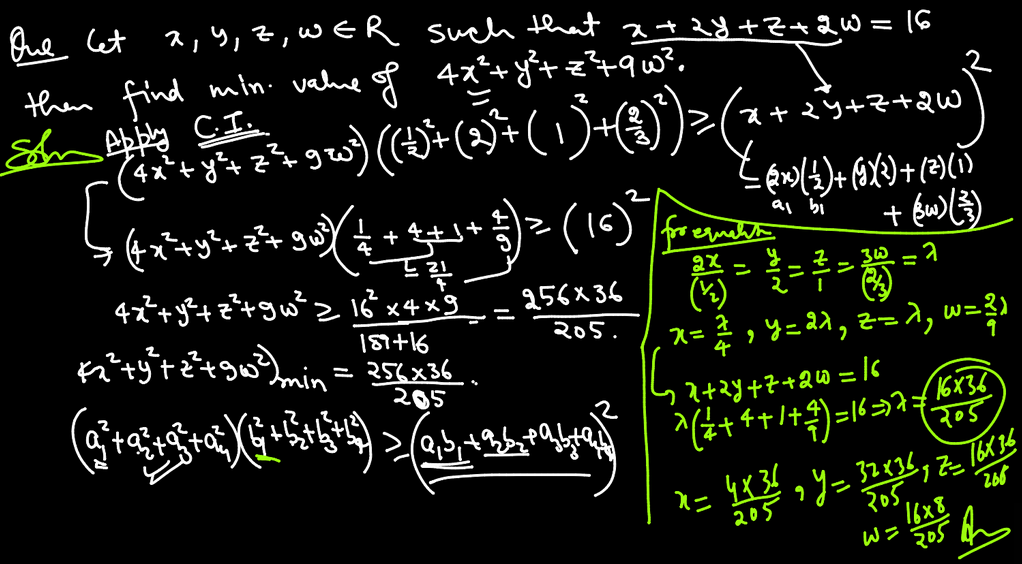 Que Let x, y, z, w ∈ R such that x + 2y + z + 2w = 16
then find min. value of 4x² + y² + z² + 9w².
Soln Apply C.I.
(4x² + y² + z² + 9w²)((1/2)² + (2)² + (1)² + (2/3)²) ≥ (x + 2y + z + 2w)²
= (2x)(1/2) + (y)(2) + (z)(1)
a₁ b₁
+ (3w)(2/3)
→ (4x² + y² + z² + 9w²)(1/4 + 4 + 1 + 4/9) ≥ (16)²
= 21/4
4x² + y² + z² + 9w² ≥ 16² × 4 × 9 / 189+16 = 256×36 / 205.
4x² + y² + z² + 9w²)min = 256×36 / 205.
(a₁² + a₂² + a₃² + a₄²)(b₁² + b₂² + b₃² + b₄²) ≥ (a₁b₁ + a₂b₂ + a₃b₃ + a₄b₄)²
for equality
2x/(1/2) = y/2 = z/1 = 3w/(2/3) = λ
x = λ/4, y = 2λ, z = λ, w = 2/9 λ
→ x + 2y + z + 2w = 16
λ(1/4 + 4 + 1 + 4/9) = 16 ⇒ λ = 16×36/205
x = 4×36/205, y = 32×36/205, z = 16×36/205
w = 16×8/205 Ans